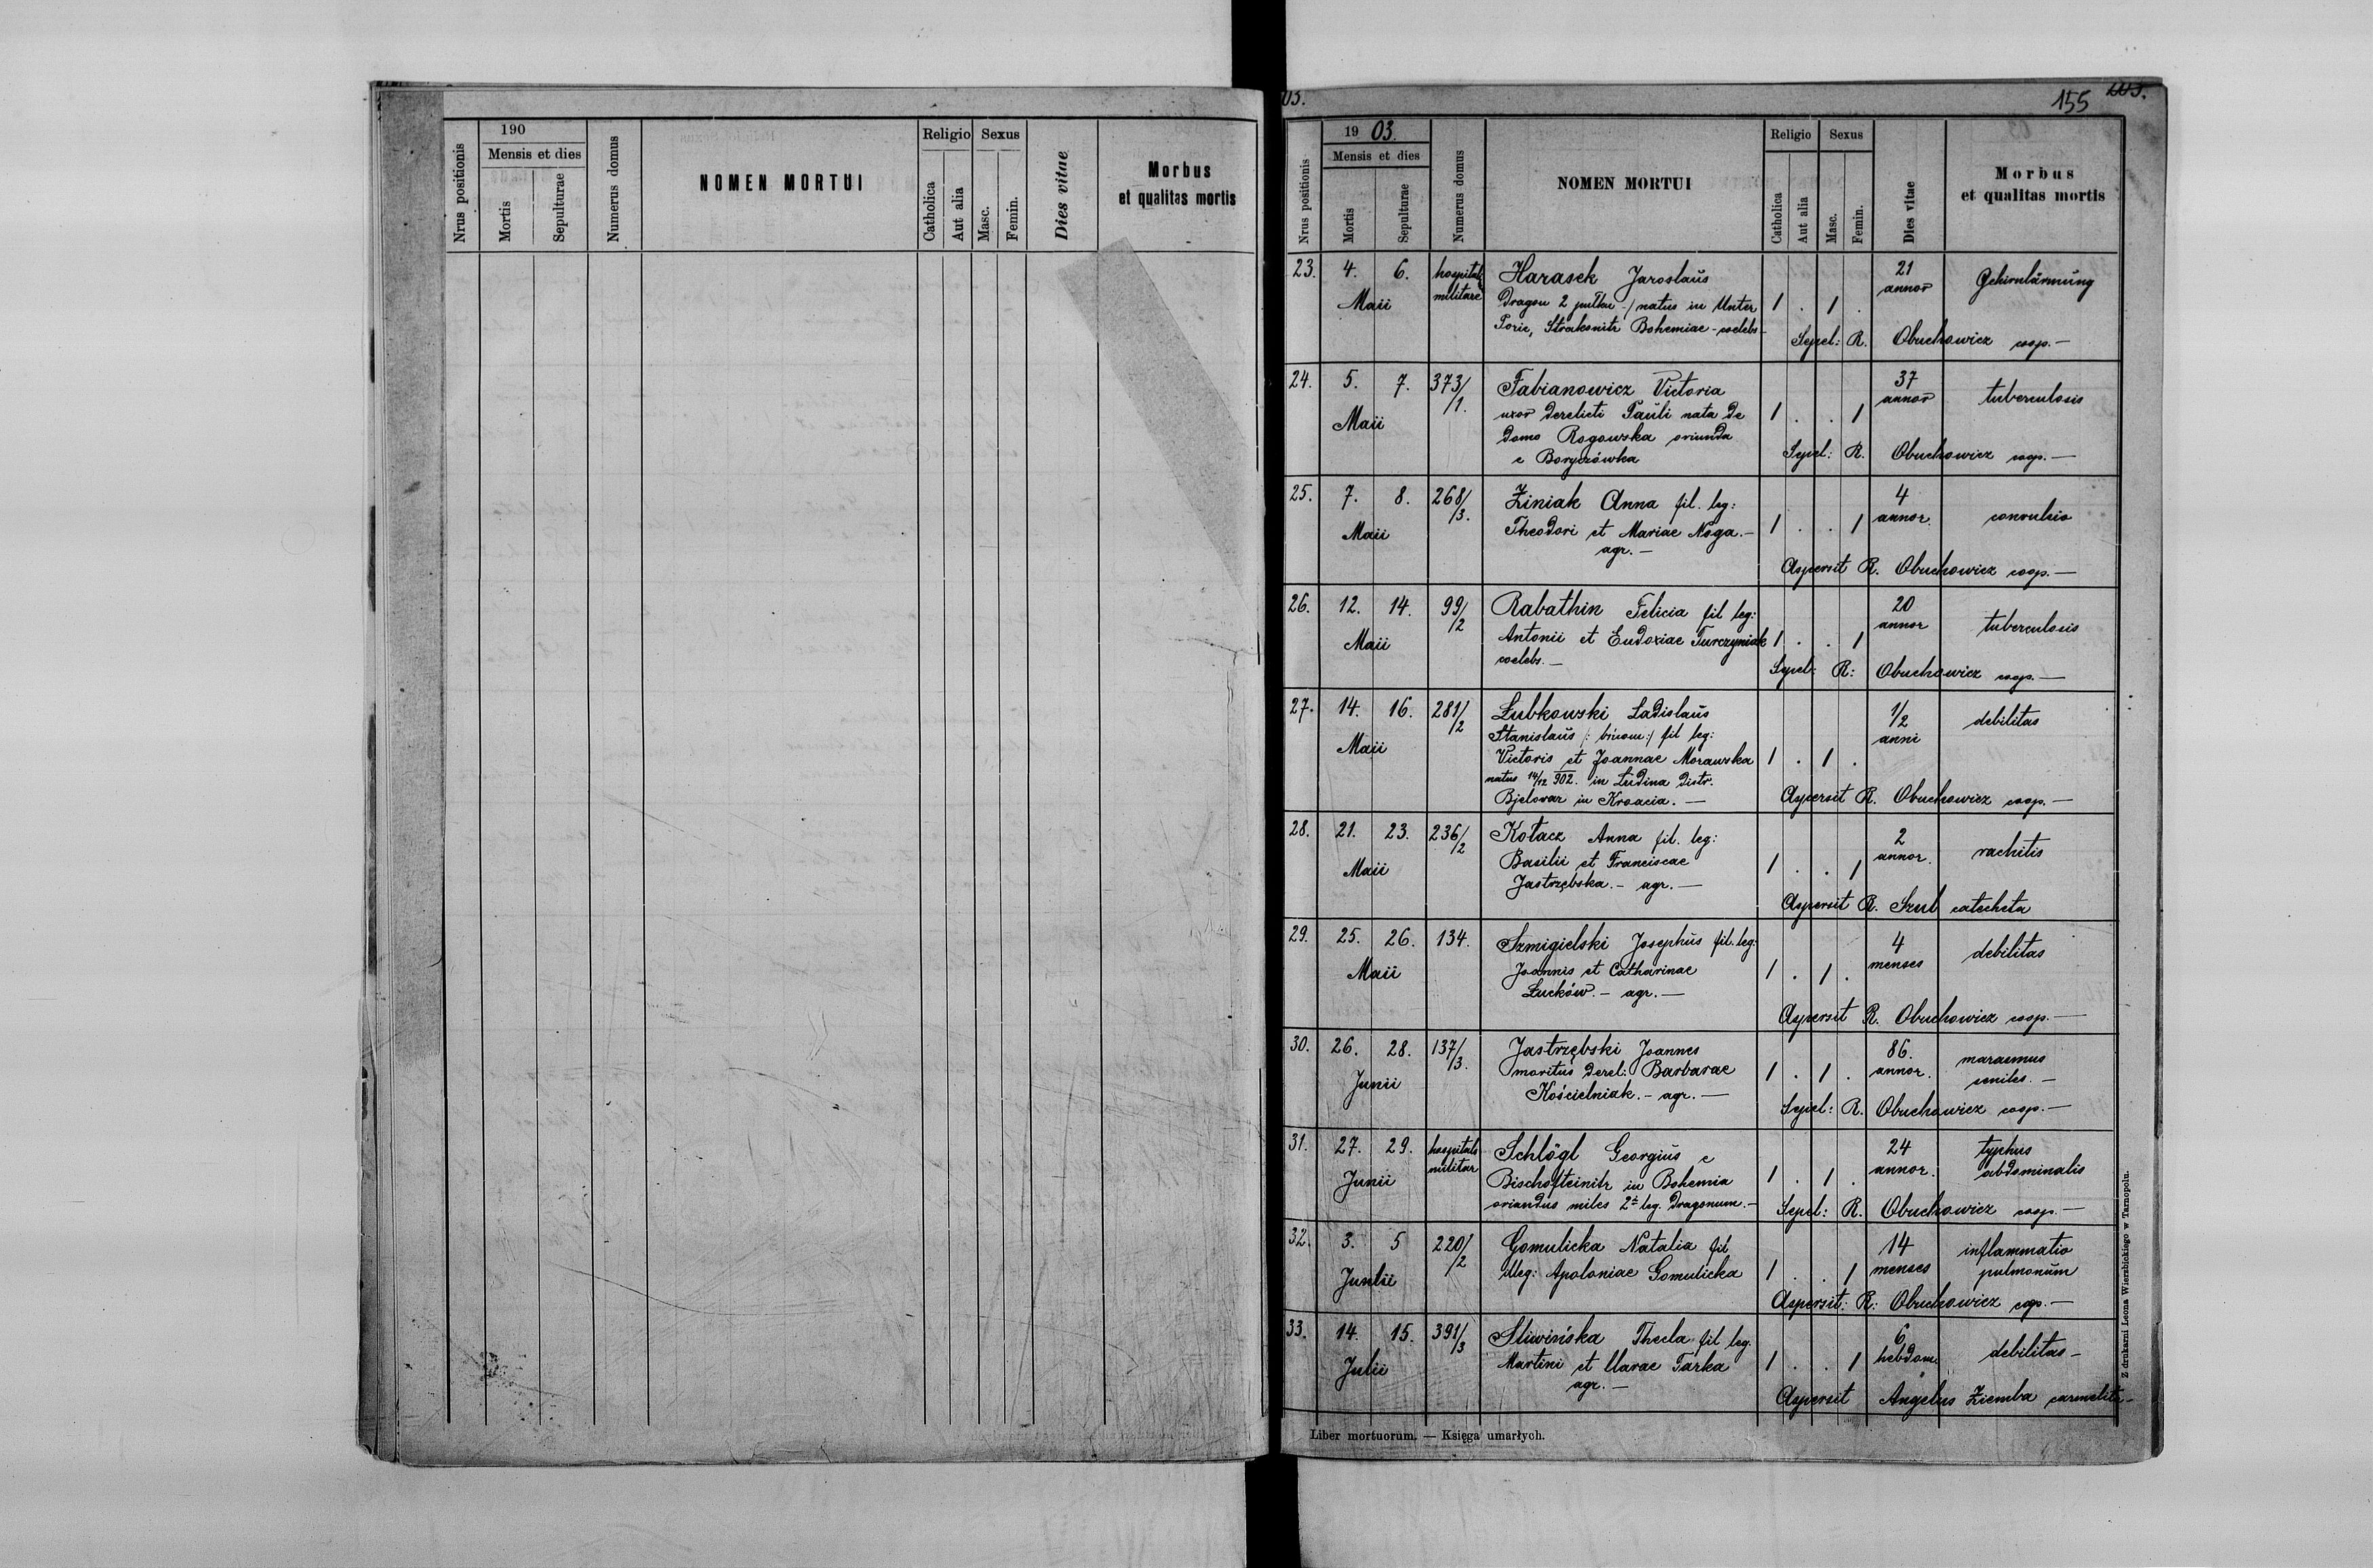 190
Mensis et dies
Nrus piositionis
Mortis
Sepulturae
Numerus domus
NOMEN MORTUI
Religio
Sexus
Catholica
Aut alia
Masc.
Femin.
Dies vitae
Morbus
et qualitas mortis
03.
155
19 03.
Mensis et dies
Nrus positionis
Mortis
Sepulturae
Numerus domus
NOMEN MORTUI
Religio
Sexus
Catholica
Aut alia
Masc.
Femin.
Dies vitae
Morbus
et qualitas mortis
23. 4. 6. Maii hospital militare
Harasek Jaroslaŭs
Dragon 2 pułku -/ natus in Unter
Poric, Strakonitz Bohemiae - coelebs -
1 . 1 .
21 annor
Gehirnlärmŭng
Sepel: R. Obuchowicz coop. —
24. 5. 7. Maii 373/1.
Fabianowicz Victoria
uxor derelicti Paŭli nata de
domo Rogowska oriunda
e Boryczówka
1 . . 1
37 annor
tuberculosis
Sepel: R. Obuchowicz coop. —
25. 7. 8. Maii 268/3.
Ziniak Anna fil. leg:
Theodori et Mariae Noga. —
agr. —
1 . . 1
4 annor.
convulsio
Aspersit R. Obuchowicz coop. —
26. 12. 14. Maii 99/2
Rabathin Felicia fil leg:
Antonii et Eudoxiae Turczyniak
coelebs. —
1 . . 1
20 annor
tuberculosis
Sepel: R: Obuchowicz coop. —
27. 14. 16. Maii 281/2
Łubkowski Ladislaŭs
Stanislaŭs /: binom :/ fil leg:
Victoris et Joannae Morawska
natus 14/12 902. in Ludina distr.
Bjelovar in Kroacia. —
1 . 1 .
1/2 anni
debilitas
Aspersit R. Obuchowicz coop. —
28. 21. 23. Maii 236/2
Kołacz Anna fil. leg:
Basilii et Franciscae
Jastrzębska. — agr. —
1 . . 1
2 annor.
rachitis
Aspersit R. Szul catecheta
29. 25. 26. Maii 134.
Szmigielski Josephŭs fil. leg:
Joannis et Catharinae
Łucków. — agr. —
1 . 1 .
4 menses
debilitas
Aspersit R. Obuchowicz coop. —
30. 26. 28. Junii 137/3.
Jastrzębski Joannes
maritus derel: Barbarae
Kościelniak. — agr. —
1 . 1 .
86. annor.
marasmus
seniles. —
Sepel: R. Obuchowicz coop. —
31. 27. 29. Junii hospitale militar
Schlögl Georgiŭs e
Bischofteinitz in Bohemia
oriundus miles 2 leg. Dragonum. —
1 . 1 .
24 annor.
typhus
abdominalis
Sepel: R. Obuchowicz coop. —
32. 3. 5 Julii 220/2
Gomulicka Natalia fil
illeg: Apoloniae Gomulicka
1 . . 1
14 menses
inflammatio
pulmonŭm
Aspersit: R: Obuchowicz coop. —
33. 14. 15. Julii 391/3
Sliwińska Thecla fil leg.
Martini et Clarae Tarka
agr. —
1 . . 1
6 hebdom.
debilitas —
Aspersit Angelus Ziemba carmelita —
Liber mortuorum. — Księga umarłych.
Z drukarni Leona Wierzbickiego w Tarnopolu.